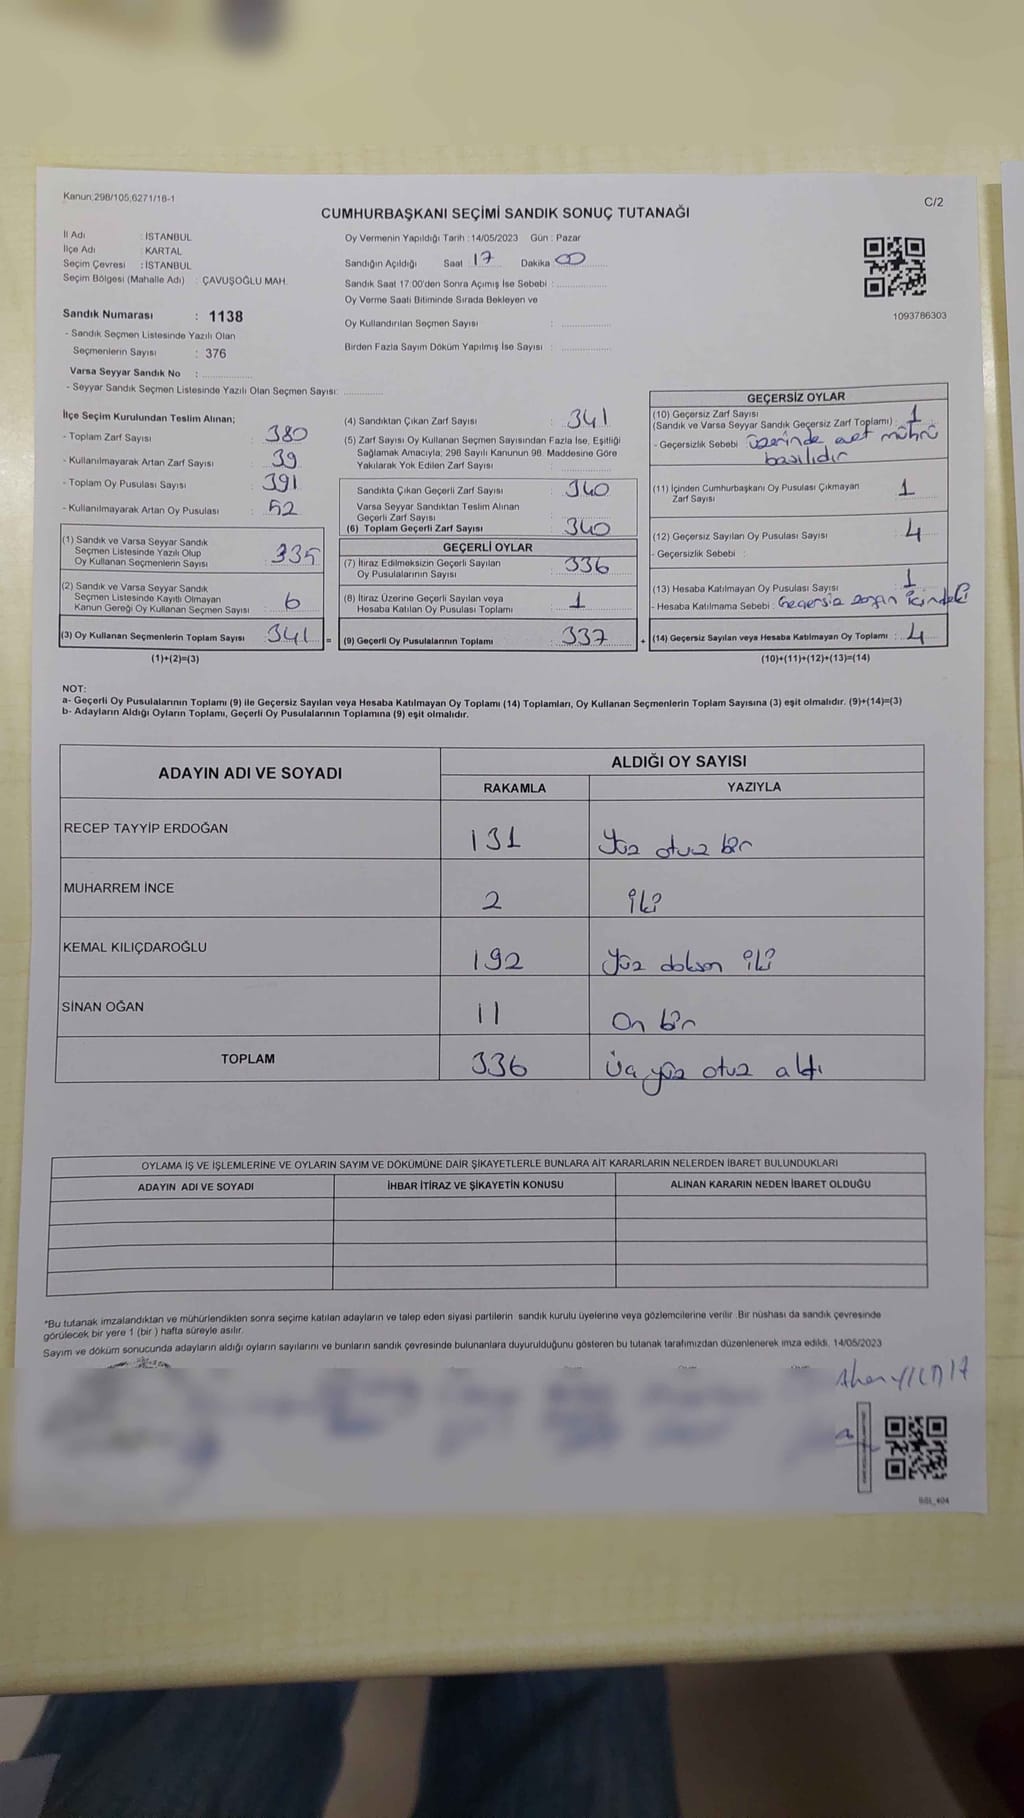 Kanun;298/105;6271/18-1
C/2
CUMHURBAŞKANI SEÇİMİ SANDIK SONUÇ TUTANAĞI
İl Adı : İSTANBUL
İlçe Adı : KARTAL
Seçim Çevresi : İSTANBUL
Seçim Bölgesi (Mahalle Adı) : ÇAVUŞOĞLU MAH.
Oy Vermenin Yapıldığı Tarih : 14/05/2023 Gün : Pazar
Sandığın Açıldığı Saat 17 Dakika 00
Sandık Saat 17:00'den Sonra Açımış İse Sebebi :
Oy Verme Saati Bitiminde Sırada Bekleyen ve
Oy Kullandırılan Seçmen Sayısı :
Birden Fazla Sayım Döküm Yapılmış İse Sayısı :
1093786303
Sandık Numarası : 1138
- Sandık Seçmen Listesinde Yazılı Olan
Seçmenlerin Sayısı : 376
Varsa Seyyar Sandık No :
- Seyyar Sandık Seçmen Listesinde Yazılı Olan Seçmen Sayısı:
İlçe Seçim Kurulundan Teslim Alınan;
- Toplam Zarf Sayısı : 380
- Kullanılmayarak Artan Zarf Sayısı : 39
- Toplam Oy Pusulası Sayısı : 391
- Kullanılmayarak Artan Oy Pusulası : 52
(1) Sandık ve Varsa Seyyar Sandık
Seçmen Listesinde Yazılı Olup
Oy Kullanan Seçmenlerin Sayısı : 335
(2) Sandık ve Varsa Seyyar Sandık
Seçmen Listesinde Kayıtlı Olmayan
Kanun Gereği Oy Kullanan Seçmen Sayısı : 6
(3) Oy Kullanan Seçmenlerin Toplam Sayısı : 341 =
(1)+(2)=(3)
(4) Sandıktan Çıkan Zarf Sayısı : 341
(5) Zarf Sayısı Oy Kullanan Seçmen Sayısından Fazla İse, Eşitliği
Sağlamak Amacıyla; 298 Sayılı Kanunun 98. Maddesine Göre
Yakılarak Yok Edilen Zarf Sayısı :
Sandıkta Çıkan Geçerli Zarf Sayısı : 340
Varsa Seyyar Sandıktan Teslim Alınan
Geçerli Zarf Sayısı :
(6) Toplam Geçerli Zarf Sayısı : 340
GEÇERLİ OYLAR
(7) İtiraz Edilmeksizin Geçerli Sayılan
Oy Pusulalarının Sayısı : 336
(8) İtiraz Üzerine Geçerli Sayılan veya
Hesaba Katılan Oy Pusulası Toplamı : 1
(9) Geçerli Oy Pusulalarının Toplamı : 337 +
GEÇERSİZ OYLAR
(10) Geçersiz Zarf Sayısı
(Sandık ve Varsa Seyyar Sandık Geçersiz Zarf Toplamı) : 1
- Geçersizlik Sebebi : Üzerinde evet mührü
basılıdır
(11) İçinden Cumhurbaşkanı Oy Pusulası Çıkmayan
Zarf Sayısı : 1
(12) Geçersiz Sayılan Oy Pusulası Sayısı : 4
- Geçersizlik Sebebi :
(13) Hesaba Katılmayan Oy Pusulası Sayısı : 1
- Hesaba Katılmama Sebebi : Geçersiz zarfın içindeki
(14) Geçersiz Sayılan veya Hesaba Katılmayan Oy Toplamı : 4
(10)+(11)+(12)+(13)=(14)
NOT:
a- Geçerli Oy Pusulalarının Toplamı (9) ile Geçersiz Sayılan veya Hesaba Katılmayan Oy Toplamı (14) Toplamları, Oy Kullanan Seçmenlerin Toplam Sayısına (3) eşit olmalıdır. (9)+(14)=(3)
b- Adayların Aldığı Oyların Toplamı, Geçerli Oy Pusulalarının Toplamına (9) eşit olmalıdır.
ADAYIN ADI VE SOYADI
ALDIĞI OY SAYISI
RAKAMLA YAZIYLA
RECEP TAYYİP ERDOĞAN 131 Yüz otuz bir
MUHARREM İNCE 2 iki
KEMAL KILIÇDAROĞLU 192 Yüz doksan iki
SİNAN OĞAN 11 On bir
TOPLAM 336 Üç yüz otuz altı
OYLAMA İŞ VE İŞLEMLERİNE VE OYLARIN SAYIM VE DÖKÜMÜNE DAİR ŞİKAYETLERLE BUNLARA AİT KARARLARIN NELERDEN İBARET BULUNDUKLARI
ADAYIN ADI VE SOYADI İHBAR İTİRAZ VE ŞİKAYETİN KONUSU ALINAN KARARIN NEDEN İBARET OLDUĞU
*Bu tutanak imzalandıktan ve mühürlendikten sonra seçime katılan adayların ve talep eden siyasi partilerin sandık kurulu üyelerine veya gözlemcilerine verilir. Bir nüshası da sandık çevresinde
görülecek bir yere 1 (bir ) hafta süreyle asılır.
Sayım ve döküm sonucunda adayların aldığı oyların sayılarını ve bunların sandık çevresinde bulunanlara duyurulduğunu gösteren bu tutanak tarafımızdan düzenlenerek imza edildi. 14/05/2023